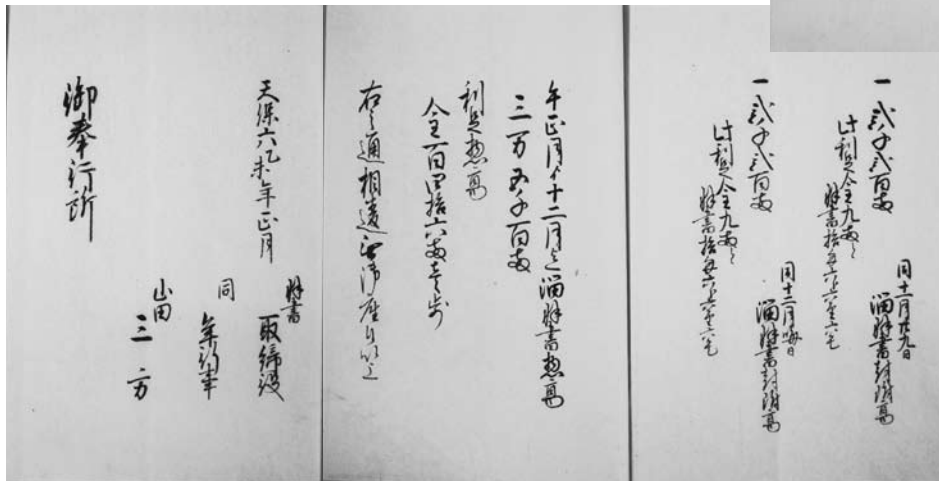 一 弐千弐百両
同十一月廿九日
溜羽書封附高
此利足金九両ト
羽書拾匁六分六厘六毛
一 弐千弐百両
同十二月晦日
溜羽書封附高
此利足金九両ト
羽書拾匁六分六厘六毛
午正月ゟ十二月迄溜羽書惣高
三万五千百両
利足惣高
金百四拾六両壱歩
右之通相違無御座候以上
天保六乙未年正月
羽書
取締役
同
年行事
山田
三方
御奉行所